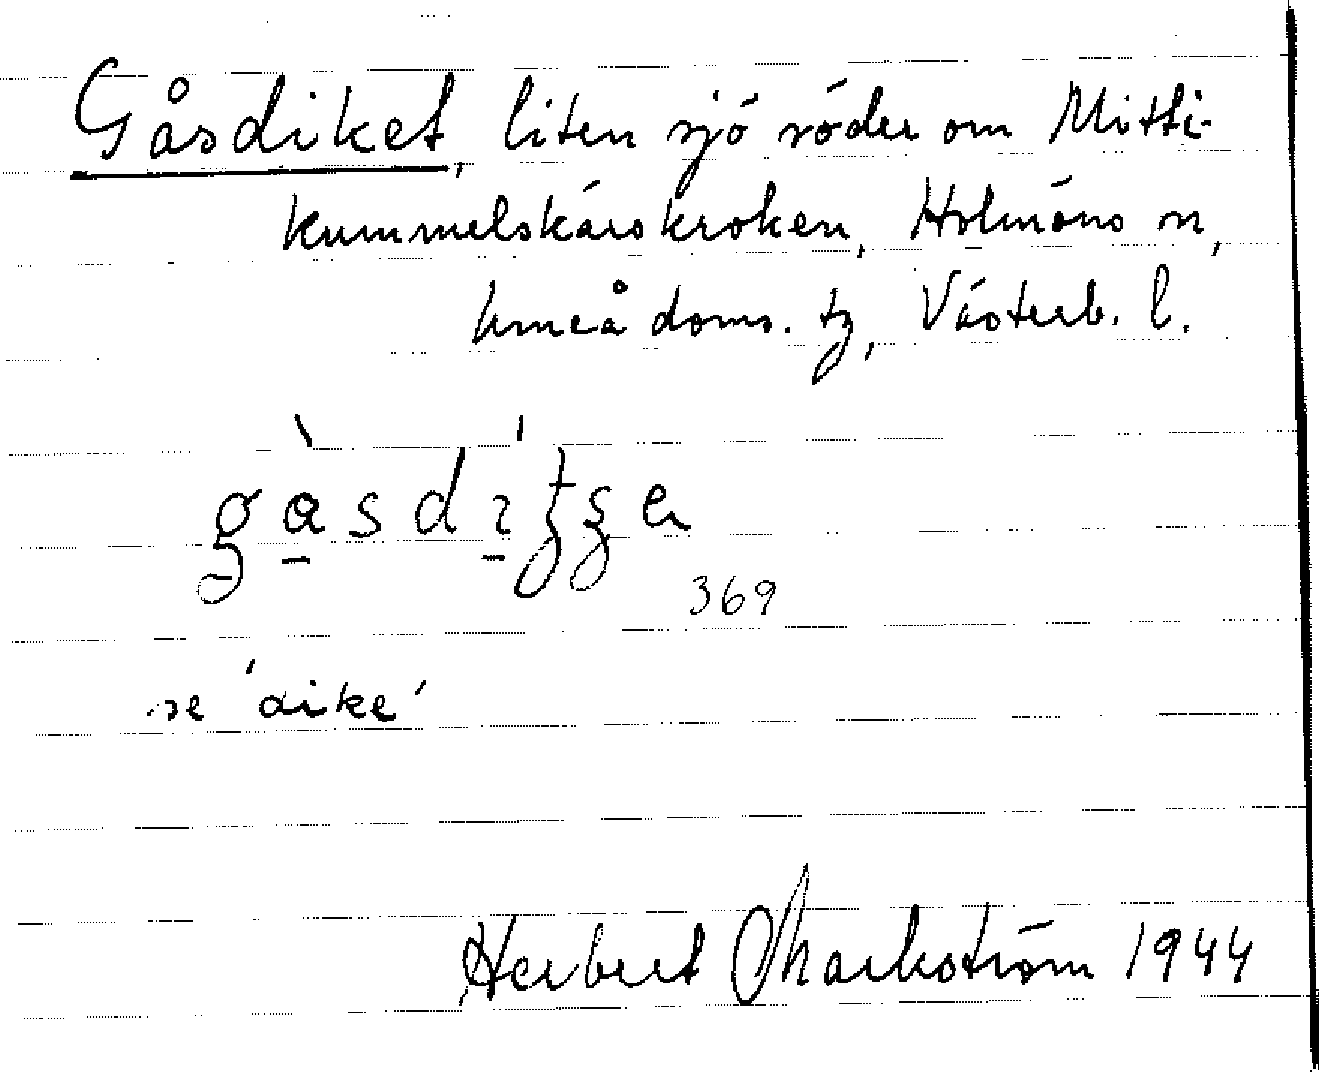 Gåsdiket, liten sjö söder om Mitti-
kummelskärskroken, Holmöns sn,
Umeå doms. tg, Västerb. l.
369
se 'dike'
Herbert Markström 1944